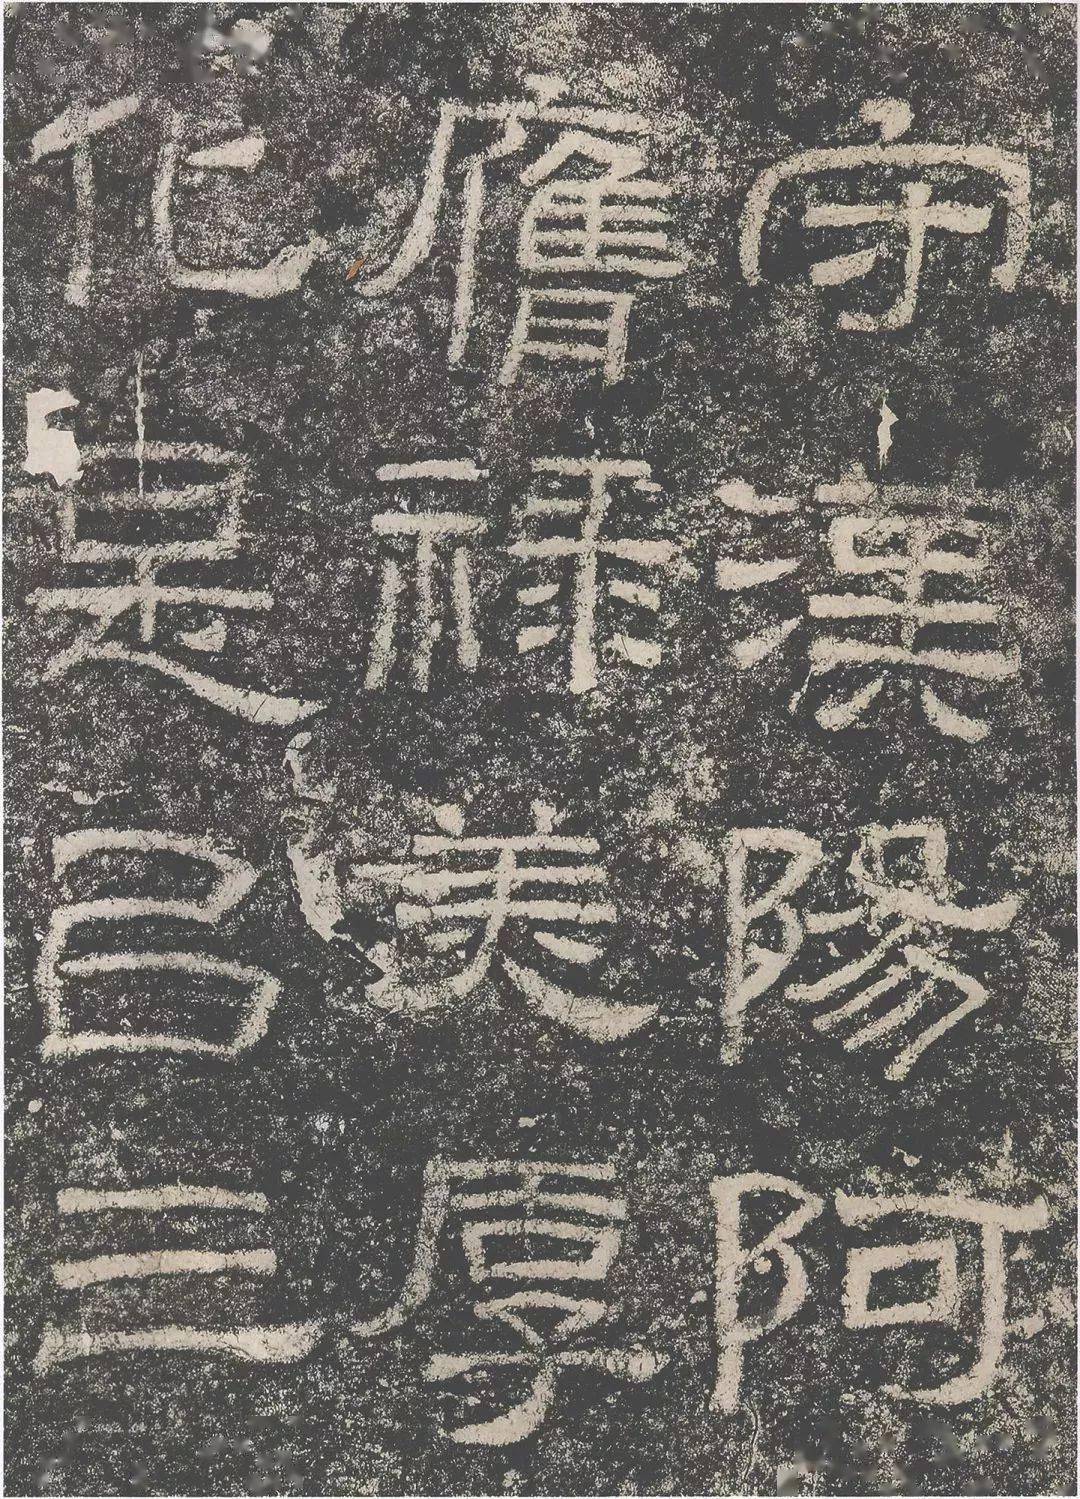 守漢陽阿
膺祿美厚
化是㠯三